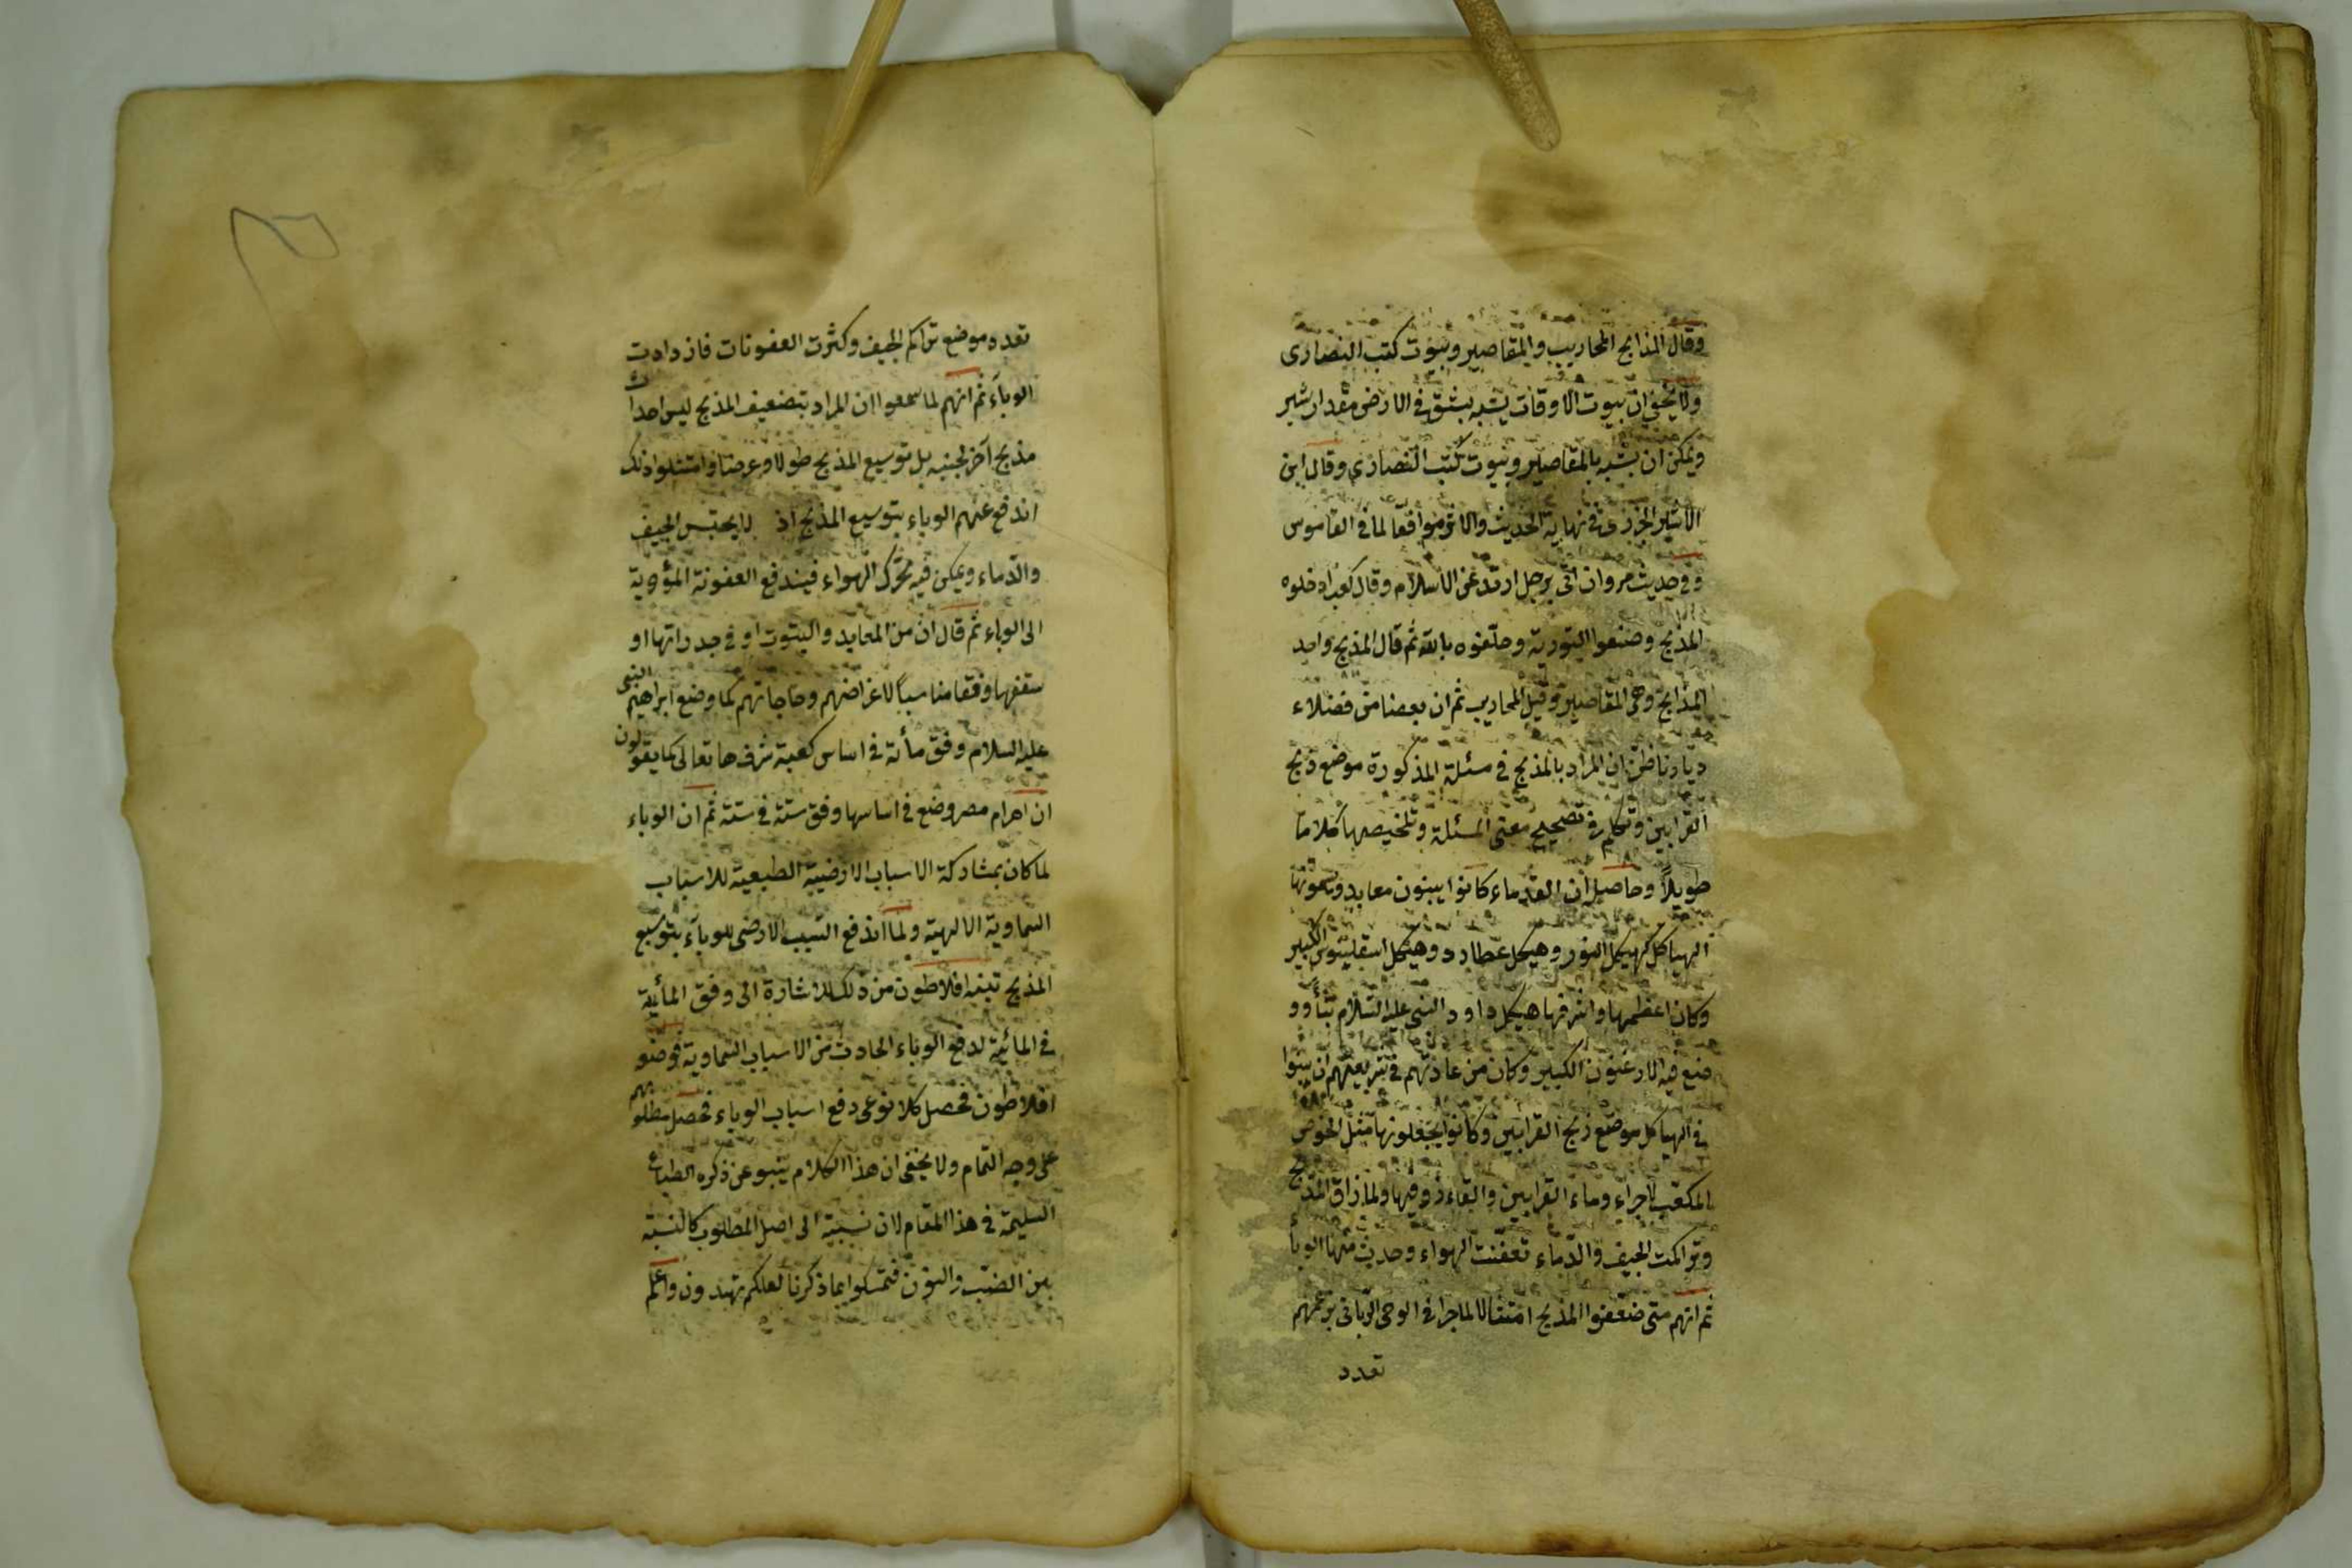 وقال المذابح المحاريب والمقاصير وبيوت كتب النصارى
ولا يخفى ان بيوت الاوقات يشبه بشق في الارض مقدار شبر
ويمكن ان يشبه بالمقاصير وبيوت كتب النصارى وقال ابن
الاثير الجزرى في نهاية الحديث والاثر موافقا لما في القاموس
وفي حديث مروان اتى برجل ارتد عن الاسلام وقال كعب ادخلوه
المذبح وضعوا التورية وحلفوه بالله ثم قال المذبح واحد
المذابح وهي المقاصير وقيل المحاريب ثم ان بعضا من فضلاء
ديارنا ظن ان المراد بالمذبح في مسئلة المذكورة موضع ذبح
القرابين وتكلم في تصحيح معنى المسئلة وتلخيصها كلاما
طويلا وحاصله ان القدماء كانوا يبنون معابد ويسمونها
الهياكل كهيكل النور وهيكل عطارد وهيكل اسقلينوس الكبير
وكان اعظمها واشرفها هيكل داود النبي عليه السلام
وضع فيه الارغنون الكبير وكان من عادتهم في شريعتهم ان يبنوا
في الهياكل موضع ذبح القرابين وكانوا يجعلونها مثل الحوض
المكعب لاجراء دماء القرابين والقاء فيها ولما ضاق المذبح
وتراكمت الجيف والدماء تعفنت الهواء وحديث منها الوبأ
ثم انهم متى ضعفوا المذبح امتثالا لما جرا في الوحى الربانى بزعمهم
تعدد
تعدد موضع تراكم الجيف وكثرت العفونات فازدادت
الوباء ثم انهم لما سمعوا ان المراد بتضعيف المذبح ليس احداث
مذبح آخر لجنبه بل توسيع المذبح طولا وعرضا وامتثلوا ذلك
اندفع عنهم الوباء بتوسيع المذبح اذ لا يحتبس الجيف
والدماء ويمكن فيه تحرك الهواء فيندفع العفونة المؤدية
الى الوباء ثم قال ان من المعابد والبيوت او في جدرانها او
سقفها وفقا مناسبا لاغراضهم وحاجاتهم كما وضع ابراهيم النبى
عليه السلام وفق مأة في اساس كعبة شرفها تعالى كما يقولون
ان اهرام مصر وضع في اساسها وفق ستة في ستة ثم ان الوباء
لما كان بمشاركة الاسباب الارضية الطبعية للاسباب
السماوية الالهية ولما اندفع السبب الارضى للوباء بتوسيع
المذبح تنبه افلاطون من ذلك للاشارة الى وفق المأية
في المائية لدفع الوباء الحادث من الاسباب السماوية فوضعه
افلاطون فحصل كلا نوعى دفع اسباب الوباء فحصل مطلوبهم
على وجه التمام ولا يخفى ان هذا الكلام ينبو عن ذكره الطباع
السليمة في هذا المقام لان نسبته الى اصل المطلوب كالنسبة
بين الضب والنون فتمسكوا بما ذكرنا لعلكم تهتدون واعلم